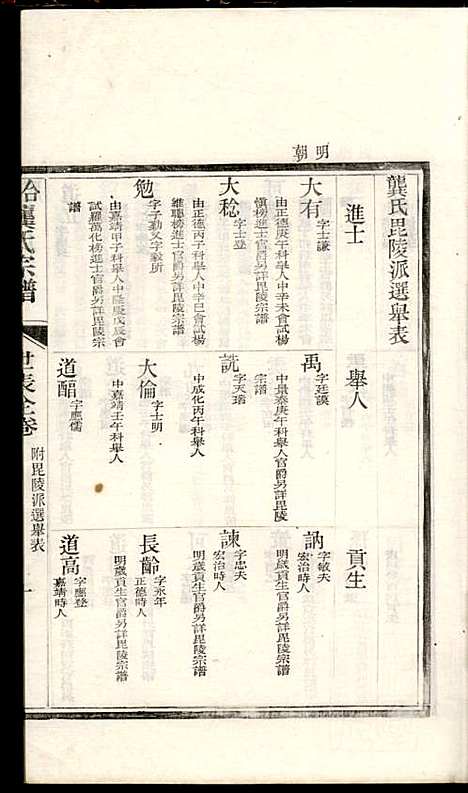 明朝
龔氏毘陵派選舉表
進士
舉人
貢生
大有
字士謙
由正德庚午科舉人中辛未會試楊
慎榜進士官爵另詳毘陵宗譜
禹
字廷謨
中景泰庚午科舉人官爵另詳毘陵
宗譜
訥
字敏夫
宏治時人
明歲貢生官爵另詳毘陵宗譜
大稔
字士登
由正德丙子科舉人中辛巳會試楊
維聰榜進士官爵另詳毘陵宗譜
詵
字天瑞
中成化丙午科舉人
諫
字忠夫
宏治時人
明歲貢生官爵另詳毘陵宗譜
勉
字子勤又字毅所
由嘉靖甲子科舉人中隆慶戊辰會
試羅萬化榜進士官爵另詳毘陵宗
譜
大倫
字士明
中嘉靖壬午科舉人
長齡
字永年
正德時人
明歲貢生官爵另詳毘陵宗譜
道醅
字應儒
道高
字應登
嘉靖時人
龔氏宗譜
世表全卷
附毘陵派選舉表
一